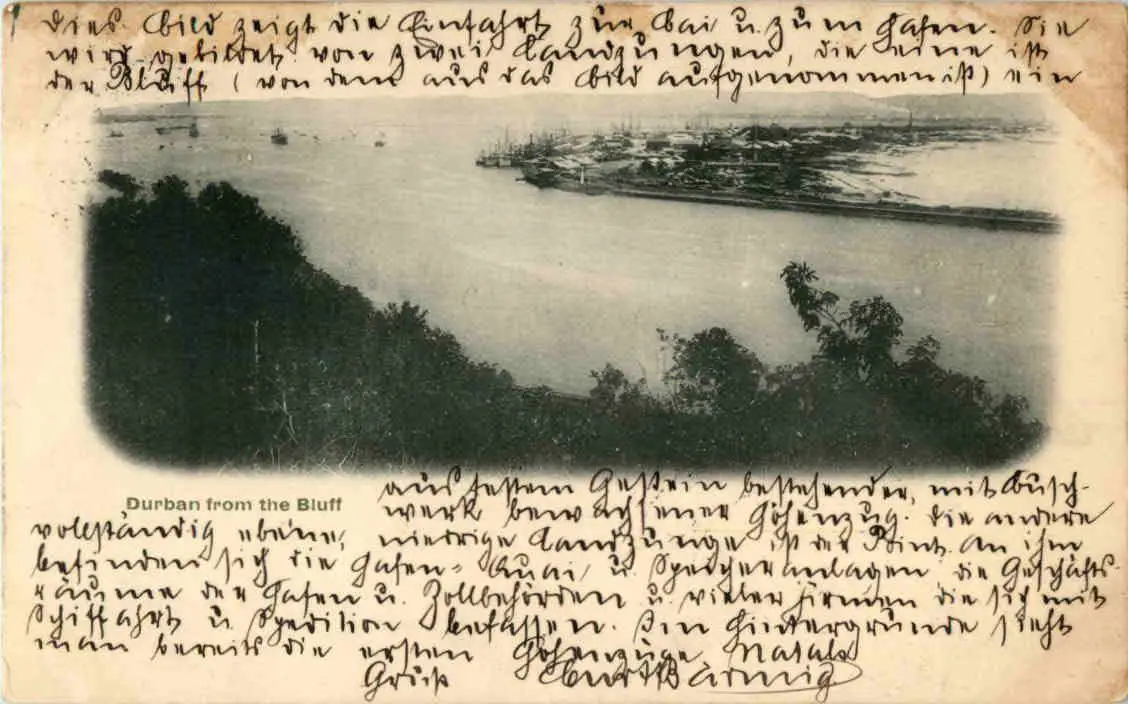 Dies Bild zeigt die Einfahrt zur Bai u. zum Hafen. Sie
wird gebildet von zwei Landzungen, die eine ist
der Bluff (von dem aus das Bild aufgenommen ist) ein
aus festem Gestein bestehender, mit Busch-
Durban from the Bluff
werk bewachsener Höhenzug. Die andere
vollständig ebene, niedrige Landzunge ist der Point. An ihm
befinden sich die Hafen-Quai, u. Speicheranlagen die Geschäfts-
räume der Hafen u. Zollbehörden u. vieler Firmen die sich mit
Schiffahrt u. Spedition befassen. Im Hintergrunde sieht
man bereits die ersten Höhenzüge Natals
Gruß